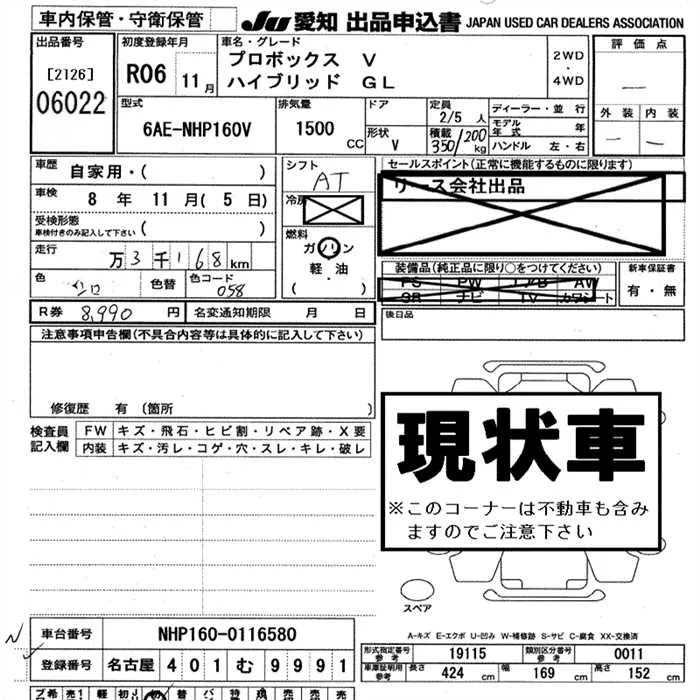 車内保管・守衛保管
JU 愛知 出品申込書 JAPAN USED CAR DEALERS ASSOCIATION
出品番号
[2126]
06022
初度登録年月
R06 11月
車名・グレード
プロボックス V
ハイブリッド GL
2WD
・
4WD
評価点
—
外装 内装
— —
型式
6AE-NHP160V
排気量
1500 CC
ドア
形状
V
定員
2/5 人
積載
350/200 kg
ディーラー・並行
モデル年式 年
ハンドル 左・右
車歴 自家用・( )
車検 8 年 11 月( 5 日)
受検形態
車検付きのみ記入して下さい ( )
走行 万 3 千 1 6 8 km
色 シロ 色替 色コード 058
シフト
AT
冷房
燃料
ガソリン
軽・油
( )
セールスポイント(正常に機能するものに限ります)
リース会社出品
装備品(純正品に限り○をつけてください)
PS PW エアB AW
SR ナビ TV カワシート
新車保証書
有・無
R券 8,990 円 名変通知期限 月 日
後日品
注意事項申告欄(不具合内容等は具体的に記入して下さい)
修復歴 有 〔箇所 〕
検査員記入欄
FW キズ・飛石・ヒビ割・リペア跡・X要
内装 キズ・汚レ・コゲ・穴・スレ・キレ・破レ
現状車
※このコーナーは不動車も含み
ますのでご注意下さい
スペア
A-キズ E-エクボ U-凹み W-補修跡 S-サビ C-腐食 XX-交換済
車台番号 NHP160-0116580
登録番号 名古屋 401 む 9991
形式指定番号参考 19115 類別区分番号参考 0011
車庫証明用参考 長さ 424 cm 幅 169 cm 高さ 152 cm